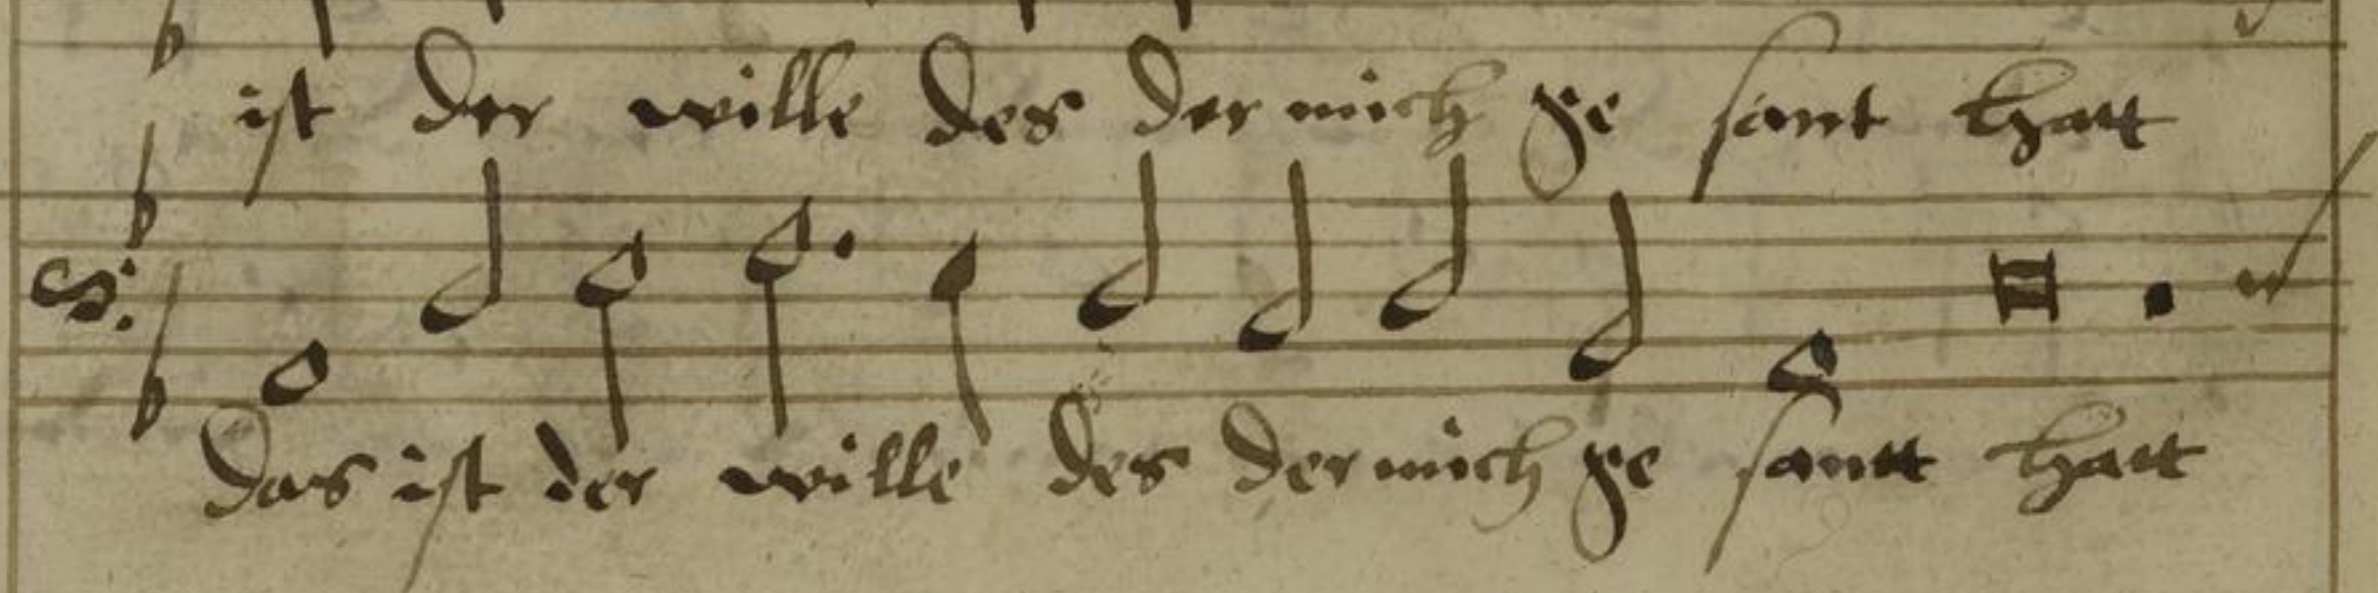 ist der wille des der mich ge sant hatt
das ist der wille des der mich ge santt hatt